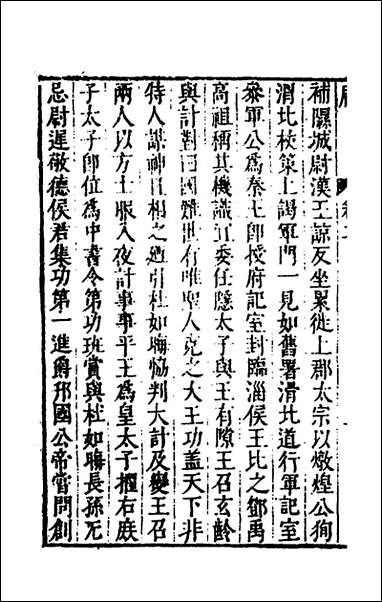 補隰城尉漢王諒反坐累徙上郡太宗以燉煌公狥
渭北杖策上謁軍門一見如舊署渭北道行軍記室
參軍公為秦王即授府記室封臨淄侯王比之鄧禹
高祖稱其機識宜委任隱太子與王有隙王召玄齡
與計對曰國難世有唯聖人克之大王功盖天下非
特人謀神且相之廼引杜如晦恊判大計及變王召
兩人以方士服入夜計事事平王為皇太子擢右庶
子太子卽位為中書令第功班賞與杜如晦長孫无
忌尉遲敬德侯君集功第一進爵邗國公帝嘗問創